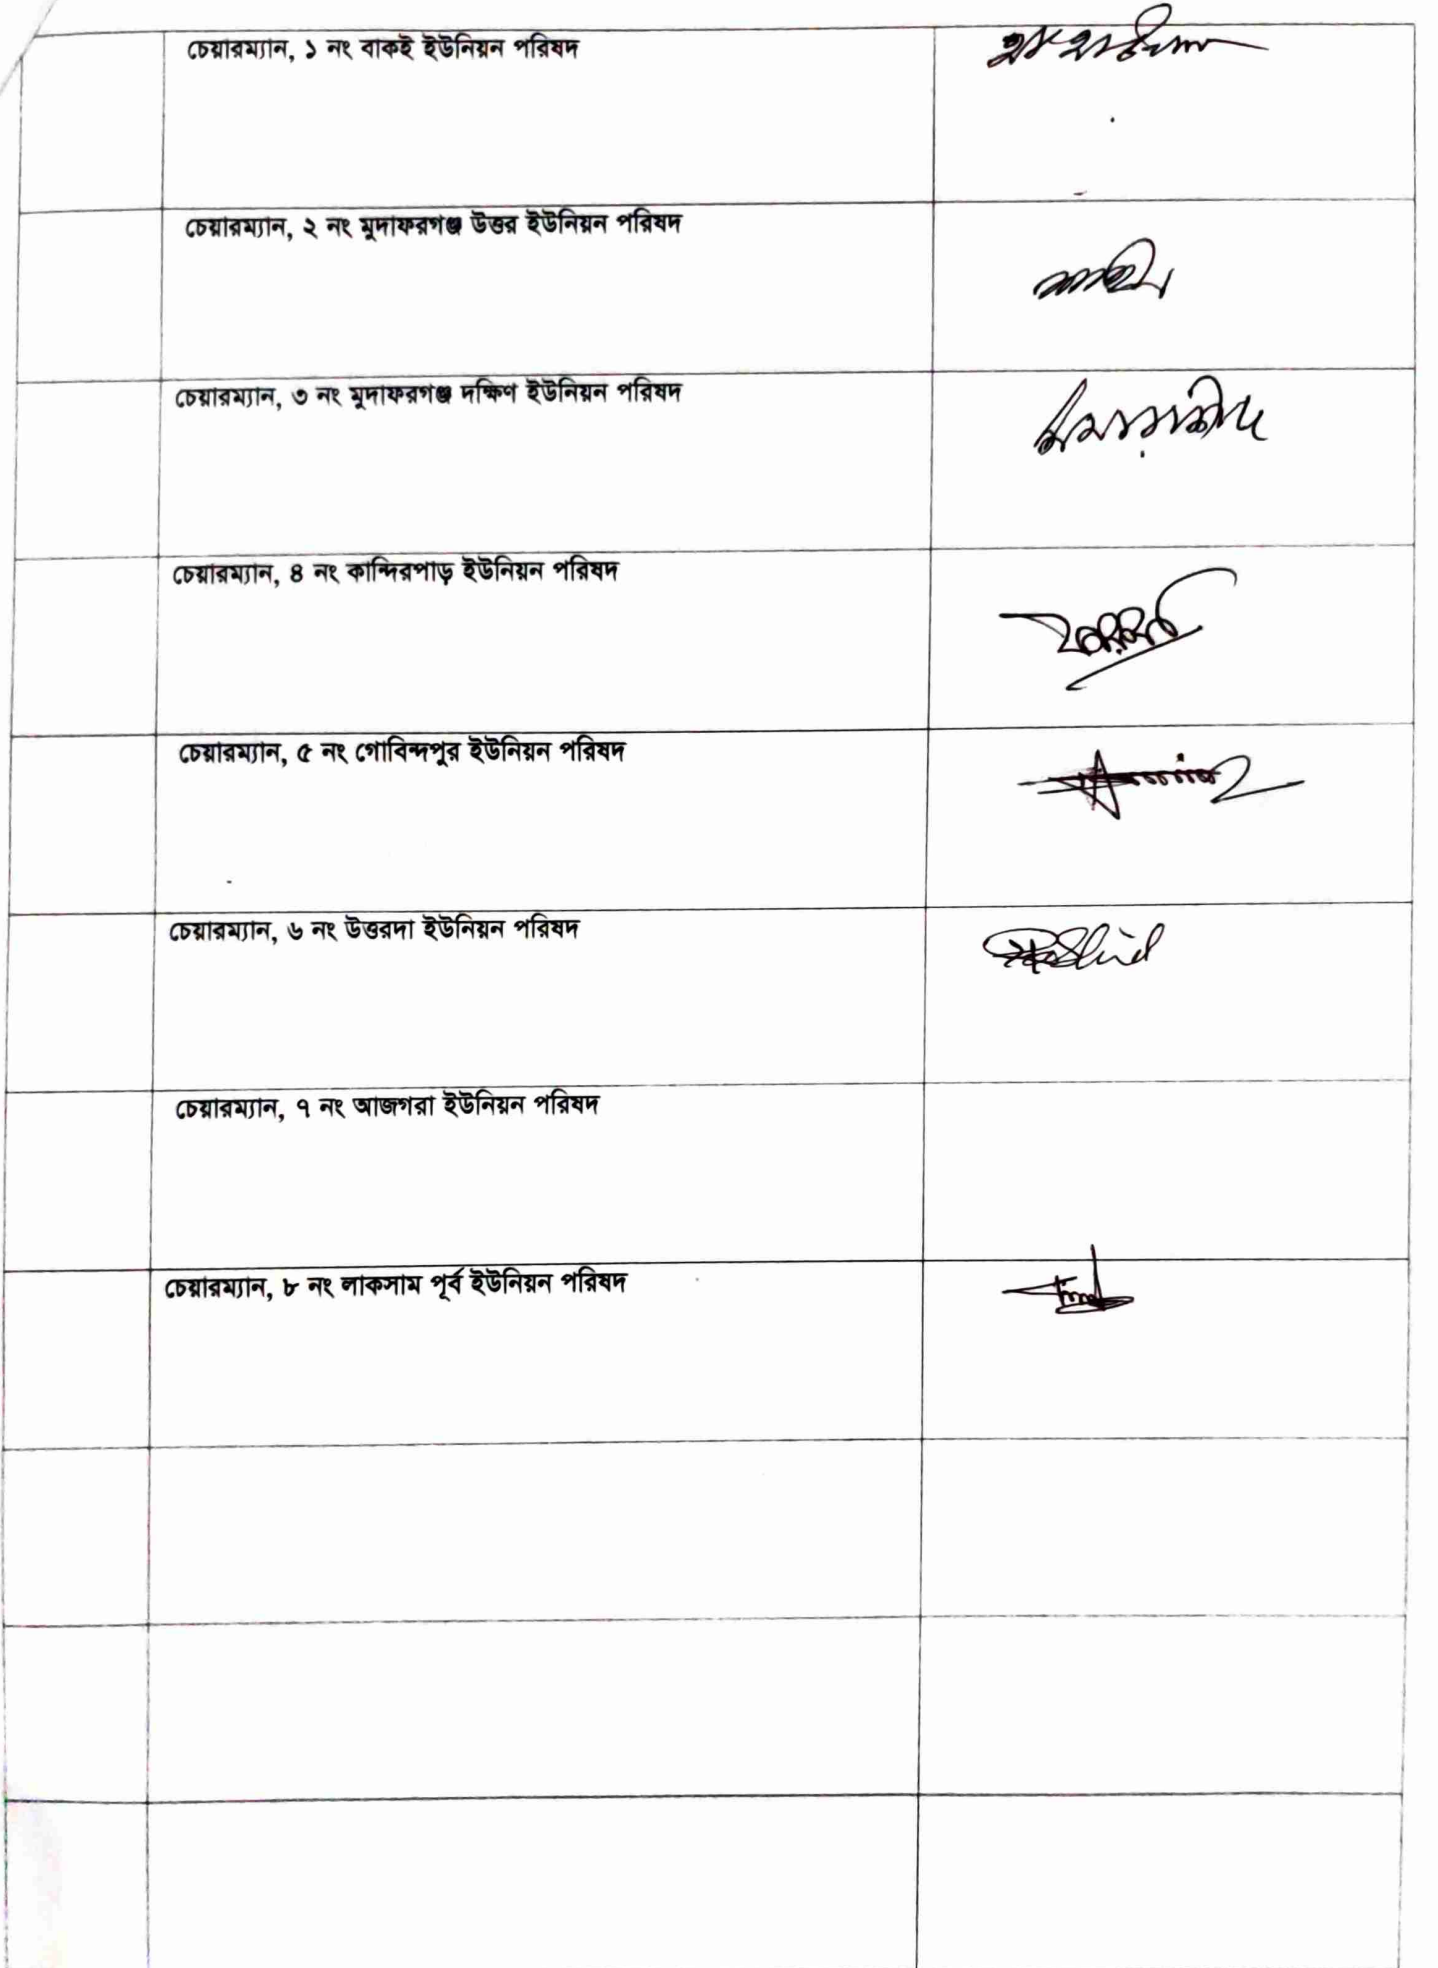 চেয়ারম্যান, ১ নং বাকই ইউনিয়ন পরিষদ
চেয়ারম্যান, ২ নং মুদাফরগঞ্জ উত্তর ইউনিয়ন পরিষদ
চেয়ারম্যান, ৩ নং মুদাফরগঞ্জ দক্ষিণ ইউনিয়ন পরিষদ
চেয়ারম্যান, ৪ নং কান্দিরপাড় ইউনিয়ন পরিষদ
চেয়ারম্যান, ৫ নং গোবিন্দপুর ইউনিয়ন পরিষদ
চেয়ারম্যান, ৬ নং উত্তরদা ইউনিয়ন পরিষদ
চেয়ারম্যান, ৭ নং আজগরা ইউনিয়ন পরিষদ
চেয়ারম্যান, ৮ নং লাকসাম পূর্ব ইউনিয়ন পরিষদ